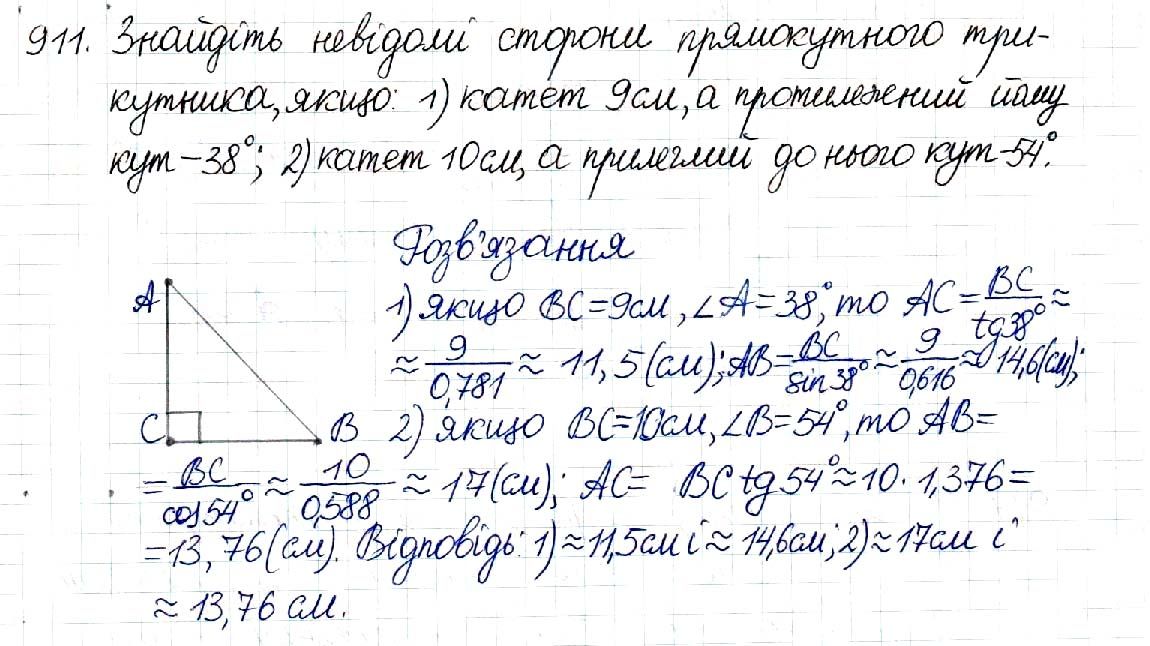 911. Знайдіть невідомі сторони прямокутного три-
кутника, якщо: 1) катет 9см, а протилежний йому
кут – 38°; 2) катет 10см, а прилеглий до нього кут – 54°.
Розв'язання
A
1) якщо BC = 9см, ∠A = 38°, то AC = BC/tg38° ≈
≈ 9/0,781 ≈ 11,5 (см); AB = BC/sin38° ≈ 9/0,616 ≈ 14,6(см);
C B 2) якщо BC = 10см, ∠B = 54°, то AB =
= BC/cos54° ≈ 10/0,588 ≈ 17(см); AC = BC tg54° ≈ 10 · 1,376 =
= 13,76 (см). Відповідь: 1) ≈ 11,5см і ≈ 14,6см; 2) ≈ 17см і
≈ 13,76 см.